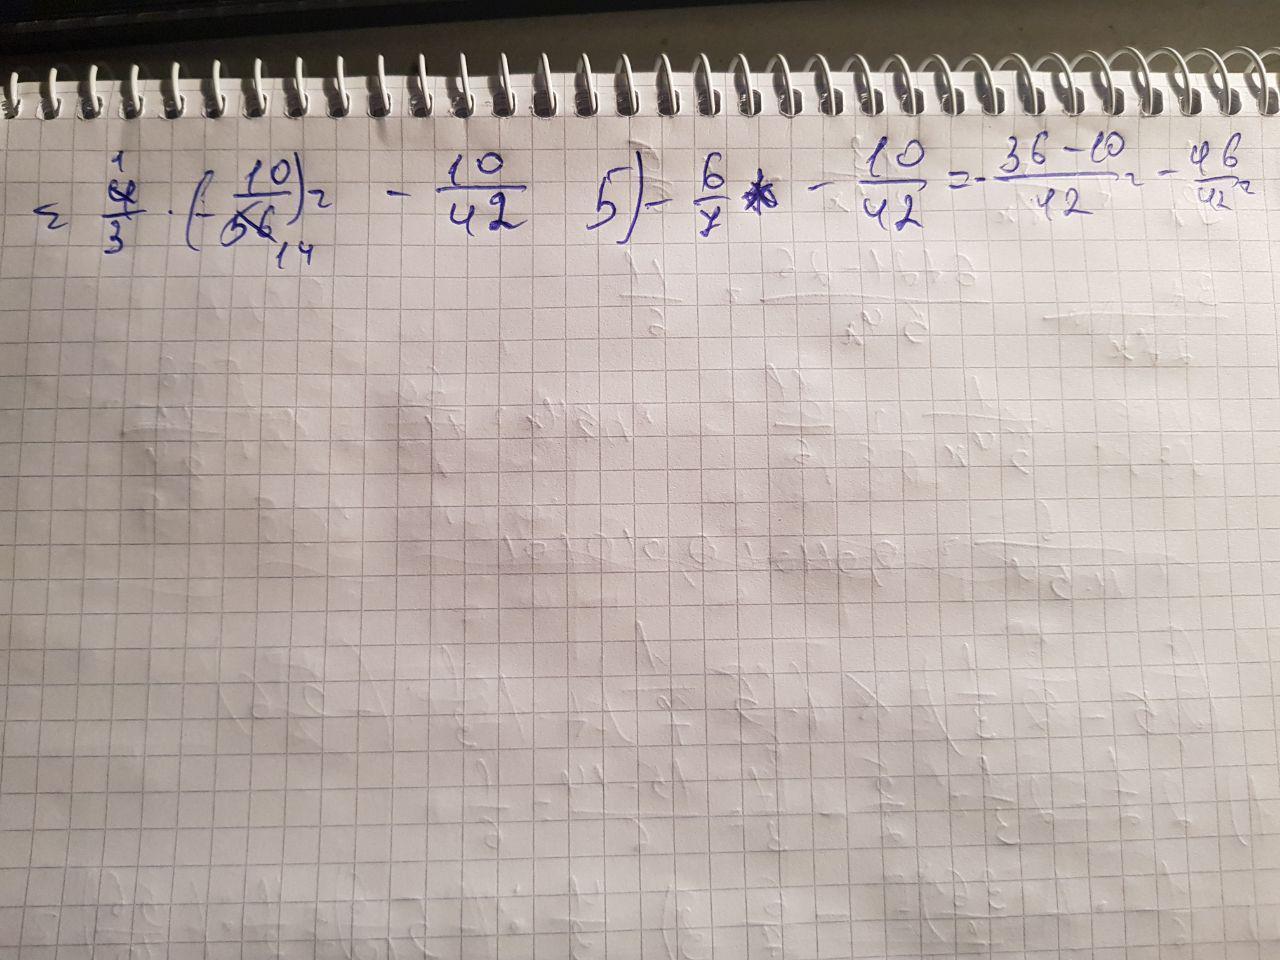 = 4/3 · (- 10/56) = - 10/42 5) - 6/7 - 10/42 = - 36 - 10/42 = - 46/42 =